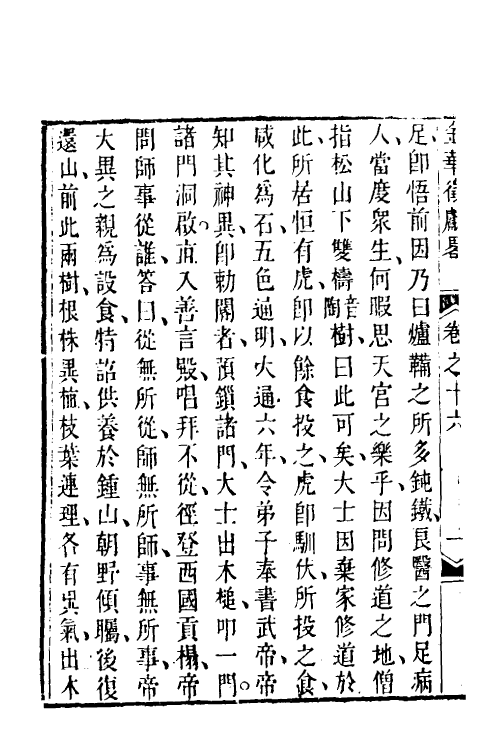 金華徵獻畧 卷之十六 一
足卽悟前因乃曰爐鞴之所多鈍鐵良醫之門足病
人當度衆生何暇思天宮之樂乎因問修道之地僧
指松山下雙檮音陶樹曰此可矣大士因棄家修道於
此所居恒有虎卽以餘食投之虎卽馴伏所投之食
咸化爲石五色通明大通六年令弟子奉書武帝帝
知其神異卽勅閽者預鎖諸門大士出木槌叩一門
諸門洞啟直入善言殿唱拜不從徑登西國貢榻帝
問師事從誰答曰從無所從師無所師事無所事帝
大異之親爲設食特詔供養於鍾山朝野傾矚後復
還山前此兩樹根株異植枝葉連理各有異氣出木